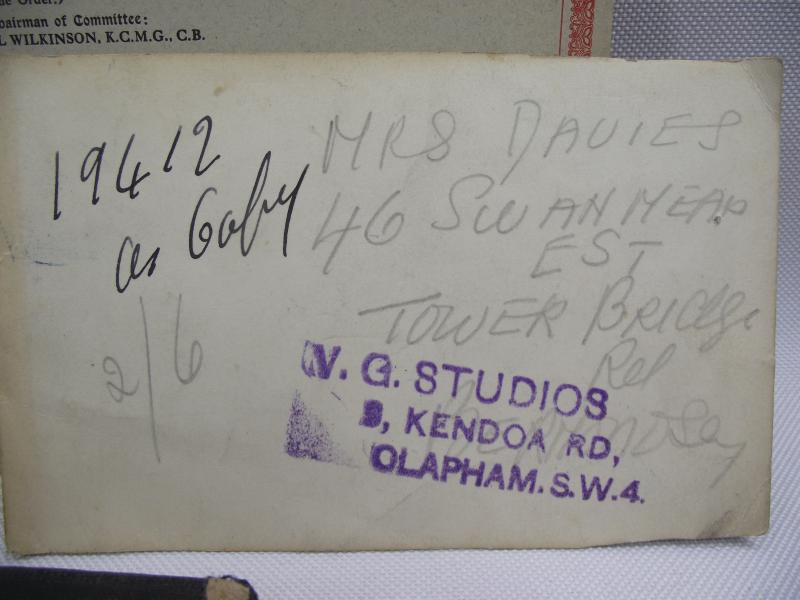 Order:)
Chairman of Committee:
WILKINSON, K.C.M.G., C.B.
19412
as Copy
2/6
MRS DAVIES
46 SWAN MEAD
EST
TOWER BRIDGE
Rd
BERMONDSEY
W. G. STUDIOS
KENDOA RD,
CLAPHAM. S.W.4.